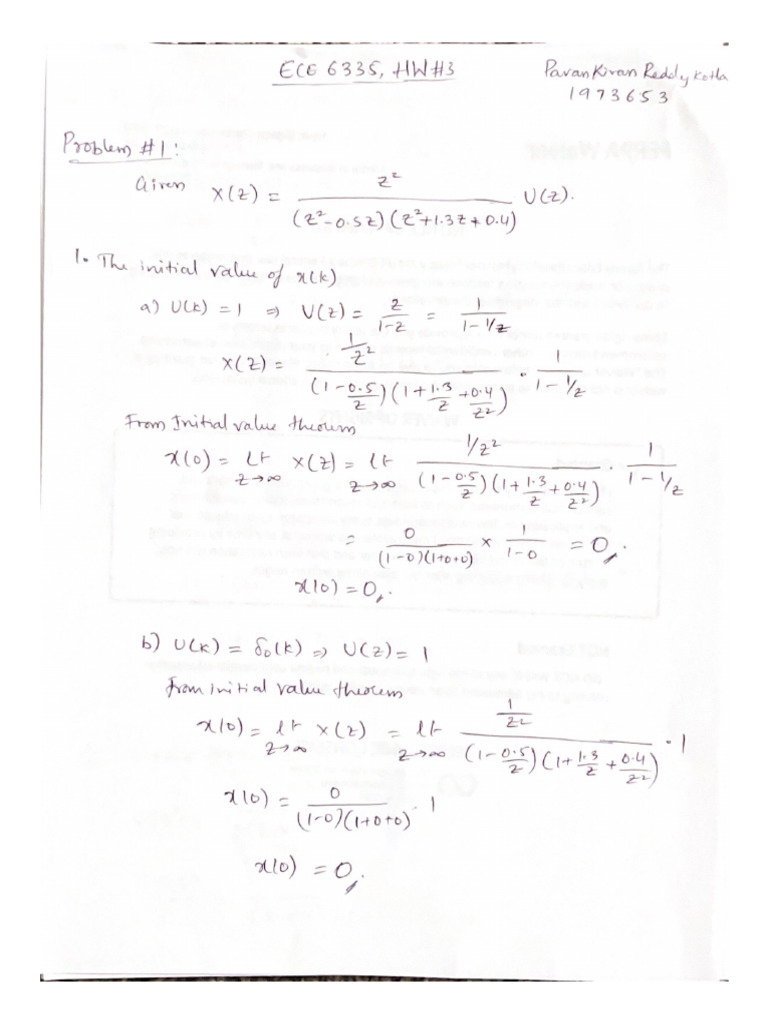 ECE 6335, HW#3
Pavan Kiran Reddy Kotla
1973653
Problem #1:
Given X(z) = z² / (z²-0.5z)(z²+1.3z+0.4) U(z).
1. The initial value of x(k)
a) U(k) = 1 ⇒ U(z) = z/(1-z) = 1/(1-1/z)
X(z) = (1/z²) / (1-0.5/z)(1+1.3/z+0.4/z²) · 1/(1-1/z)
From Initial value theorem
x(0) = Lt z→∞ X(z) = lt z→∞ (1/z²) / (1-0.5/z)(1+1.3/z+0.4/z²) · 1/(1-1/z)
= 0/(1-0)(1+0+0) × 1/(1-0) = 0
x(0) = 0
b) U(k) = δ₀(k) ⇒ U(z) = 1
from initial value theorem
x(0) = lt z→∞ X(z) = lt z→∞ (1/z²) / (1-0.5/z)(1+1.3/z+0.4/z²) · 1
x(0) = 0/(1-0)(1+0+0) · 1
x(0) = 0